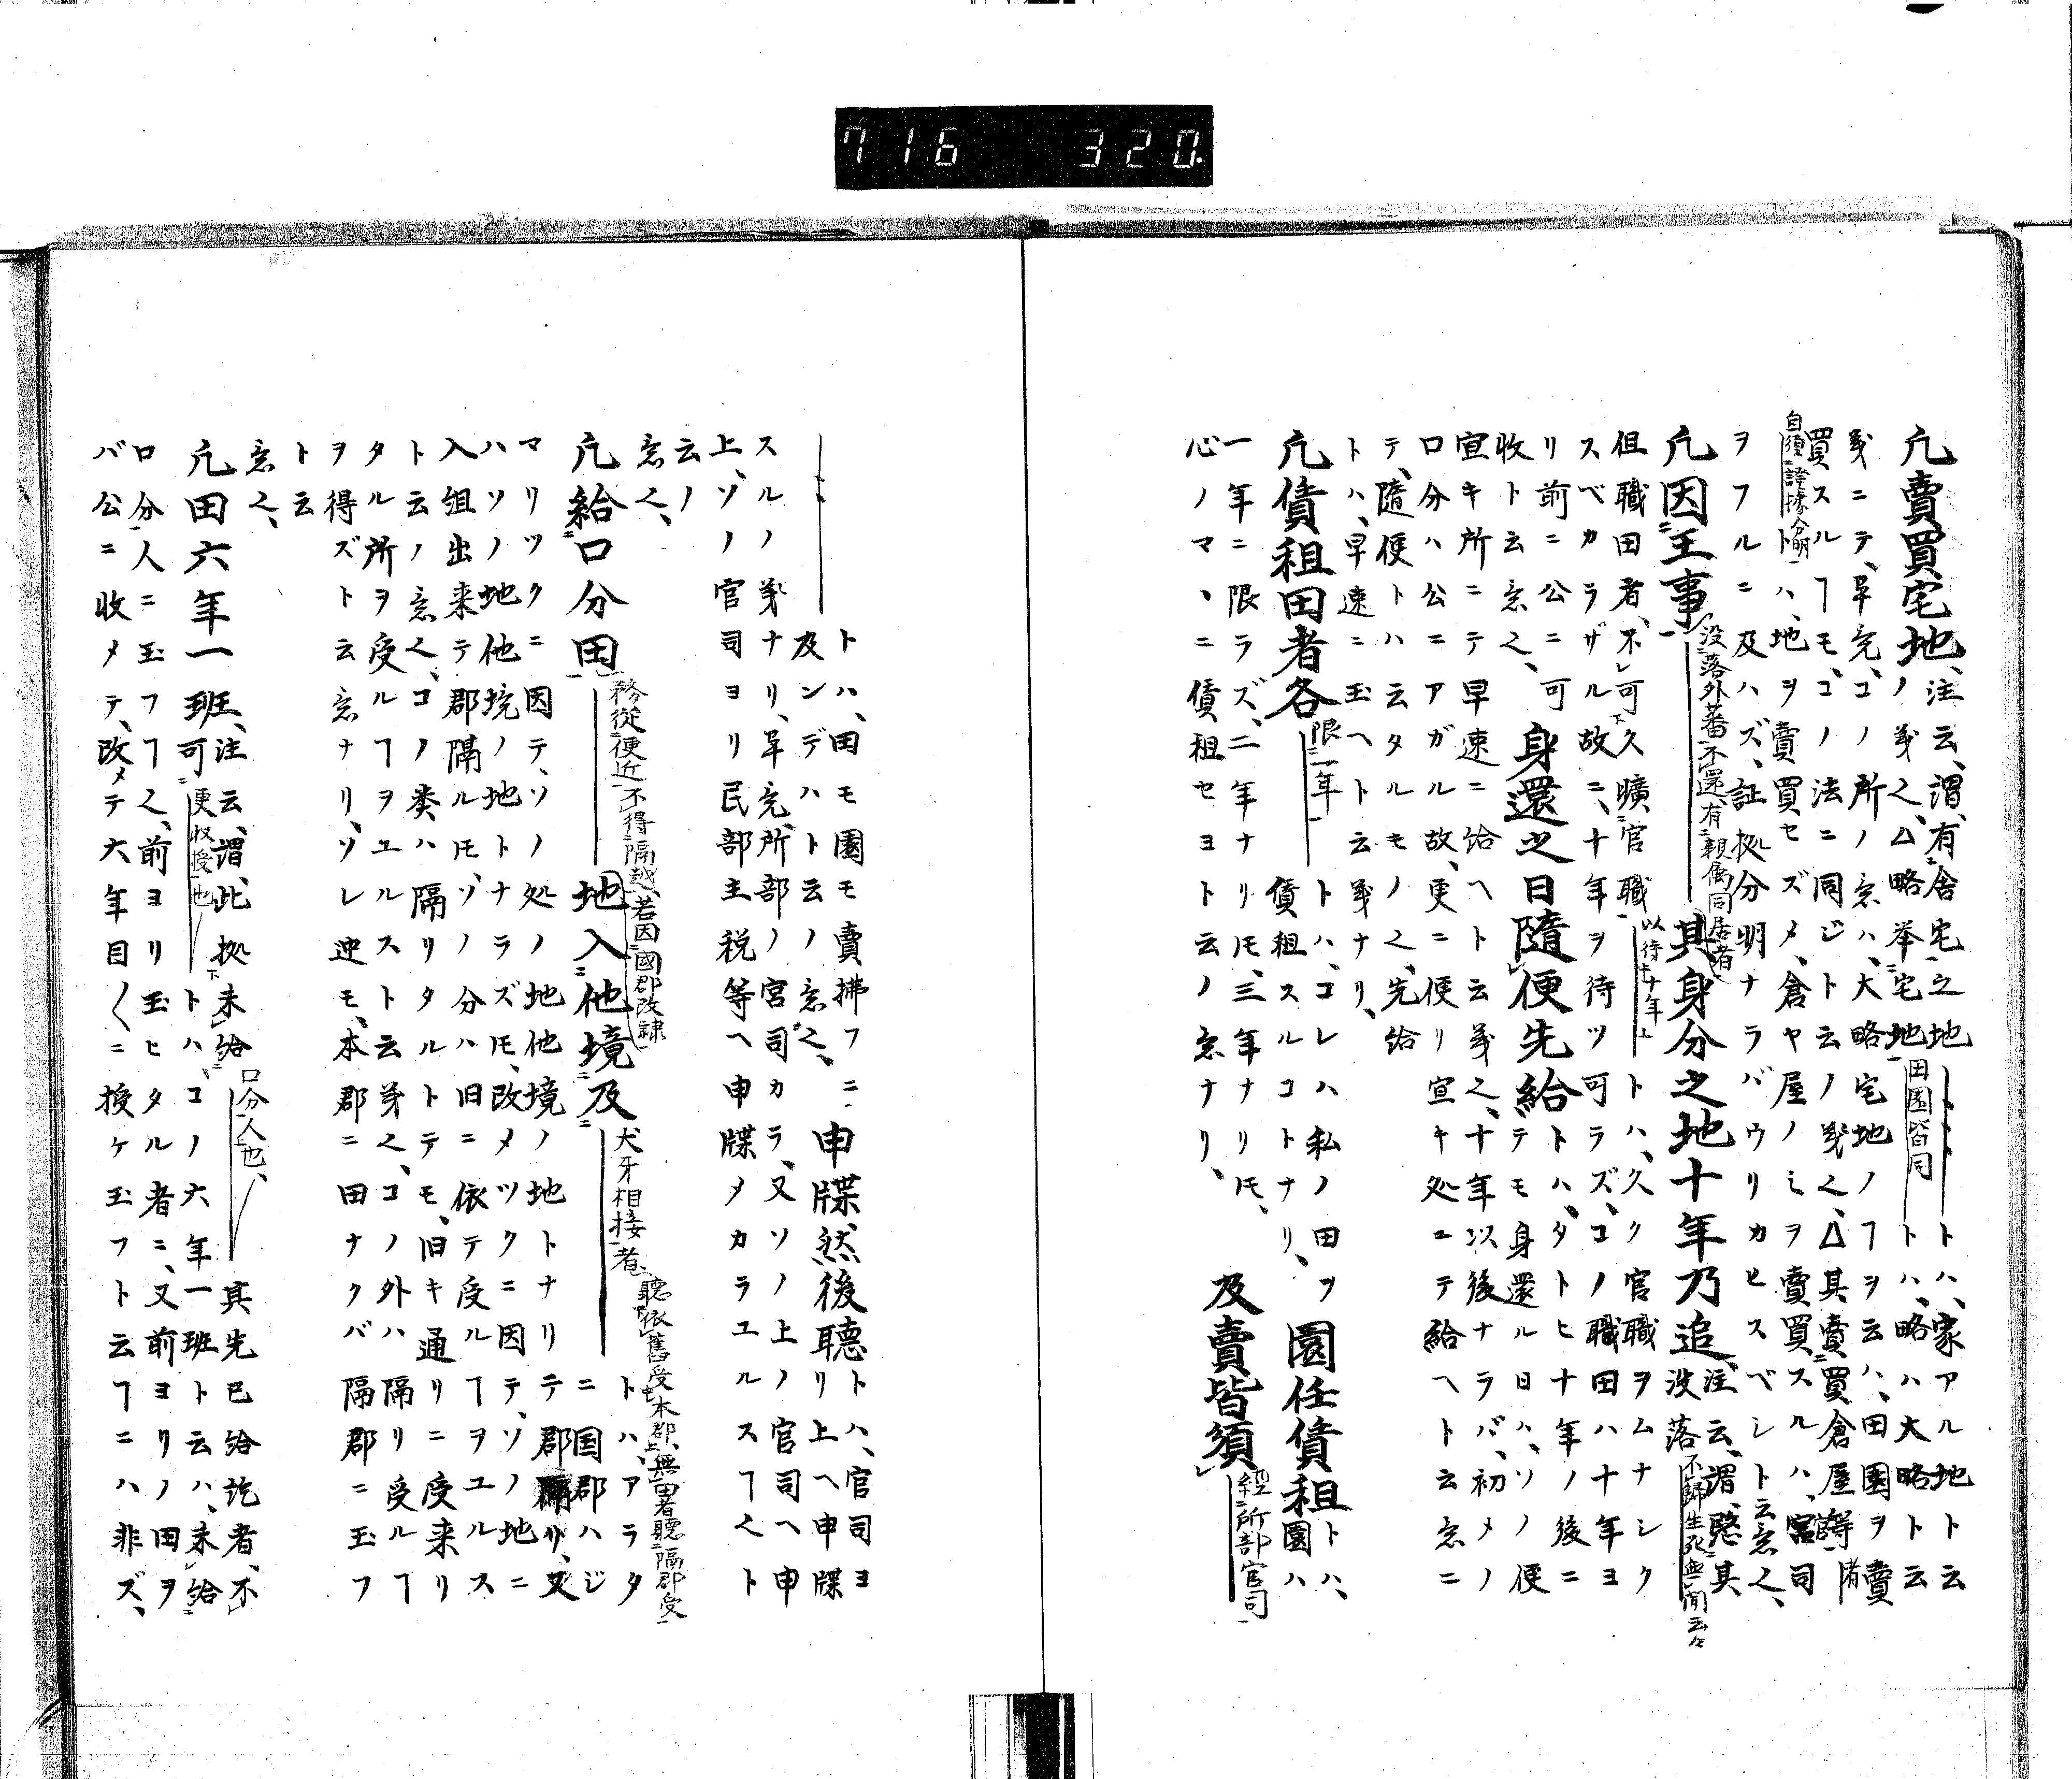 716 320.
凢賣買宅地、注云、謂、有舎宅之地トハ、家アル地ト云
義ニテ、畢竟、コノ義也、△略挙宅地田園皆同トハ、略ハ大略ト云
買スルヿモ、コノ法ニ同ジト云ノ義也、△其賣買倉屋等者
自須證據分明トハ、地ヲ賣買セズメ、倉ヤ屋ノミヲ賣買スルハ、官司
ヲフルニ及ハズ、証拠分明ナラバウリカヒスベシト云意也、
凢因王事没落外蕃不還有親属同居者其身分之地十年乃追、注云、謂、其
没落不歸生死無聞云々
但職田者、不可久曠官職以待十年トハ、久ク官職ヲムナシク
スベカラザル故ニ、十年ヲ待ツ可ラズ、コノ職田ハ十年ヨ
リ前ニ公ニ可收ト云意也、
身還之日隨便先給トハ、タトヒ十年ノ後ニ
テモ身還ル日ハ、ソノ便
宣キ所ニテ早速ニ給ヘト云義也、十年以後ナラバ、初メノ
口分ハ公ニアガル故、更ニ便リ宣キ処ニテ給ヘト云意ニ
テ、隨便トハ云タルモノ也、先給
トハ、早速ニ玉ヘト云義ナリ、
凢賃租田者各限一年トハ、コレハ私ノ田ヲ賃租スルコトナリ、
園任賃租トハ、園ハ
一年ニ限ラズ、二年ナリ𪜈、三年ナリ𪜈、
心ノマヽニ賃租セヨト云ノ意ナリ、
及賣皆須經所部官司
トハ、田モ園モ賣拂フニ
及ンデハト云ノ意也、
申牒然後聽トハ、官司ヨ
リ上ヘ申牒
スルノ義ナリ、畢竟、所部ノ官司カラ、又ソノ上ノ官司ヘ申
上、ソノ官司ヨリ民部主税等ヘ申牒メカラユルスヿ也ト
云ノ
意也、
凢給口分田務從便近不得隔越、若因國郡改隷地入他境及犬牙相接者聽依舊受本郡、無田者聽隔郡受
トハ、アラタ
ニ国郡ハジ
マリツクニ因テ、ソノ処ノ地他境ノ地トナリテ郡隔リ、又
ハソノ地他境ノ地トナラズ𪜈、改メツクニ因テ、ソノ地ニ
入組出来テ郡隔ル𪜈、ソノ分ハ旧ニ依テ受ルヿヲユルス
ト云ノ意也、コノ类ハ隔リタルトテモ、旧キ通リニ受来リ
タル所ヲ受ルヿヲユルスト云義也、コノ外ハ隔リ受ルヿ
ヲ得ズト云意ナリ、ソレ迚モ、本郡ニ田ナクバ隔郡ニ玉フ
ト云
意也、
凢田六年一班、注云、謂、此拠未給口分人也、其先已給訖者、不
可更收授也トハ、コノ六年一班ト云ハ、未給
口分人ニ玉フヿ也、前ヨリ玉ヒタル者ニ、又前ヨリノ田ヲ
バ公ニ收メテ、改メテ六年目〱ニ授ケ玉フト云ヿニハ非ズ、